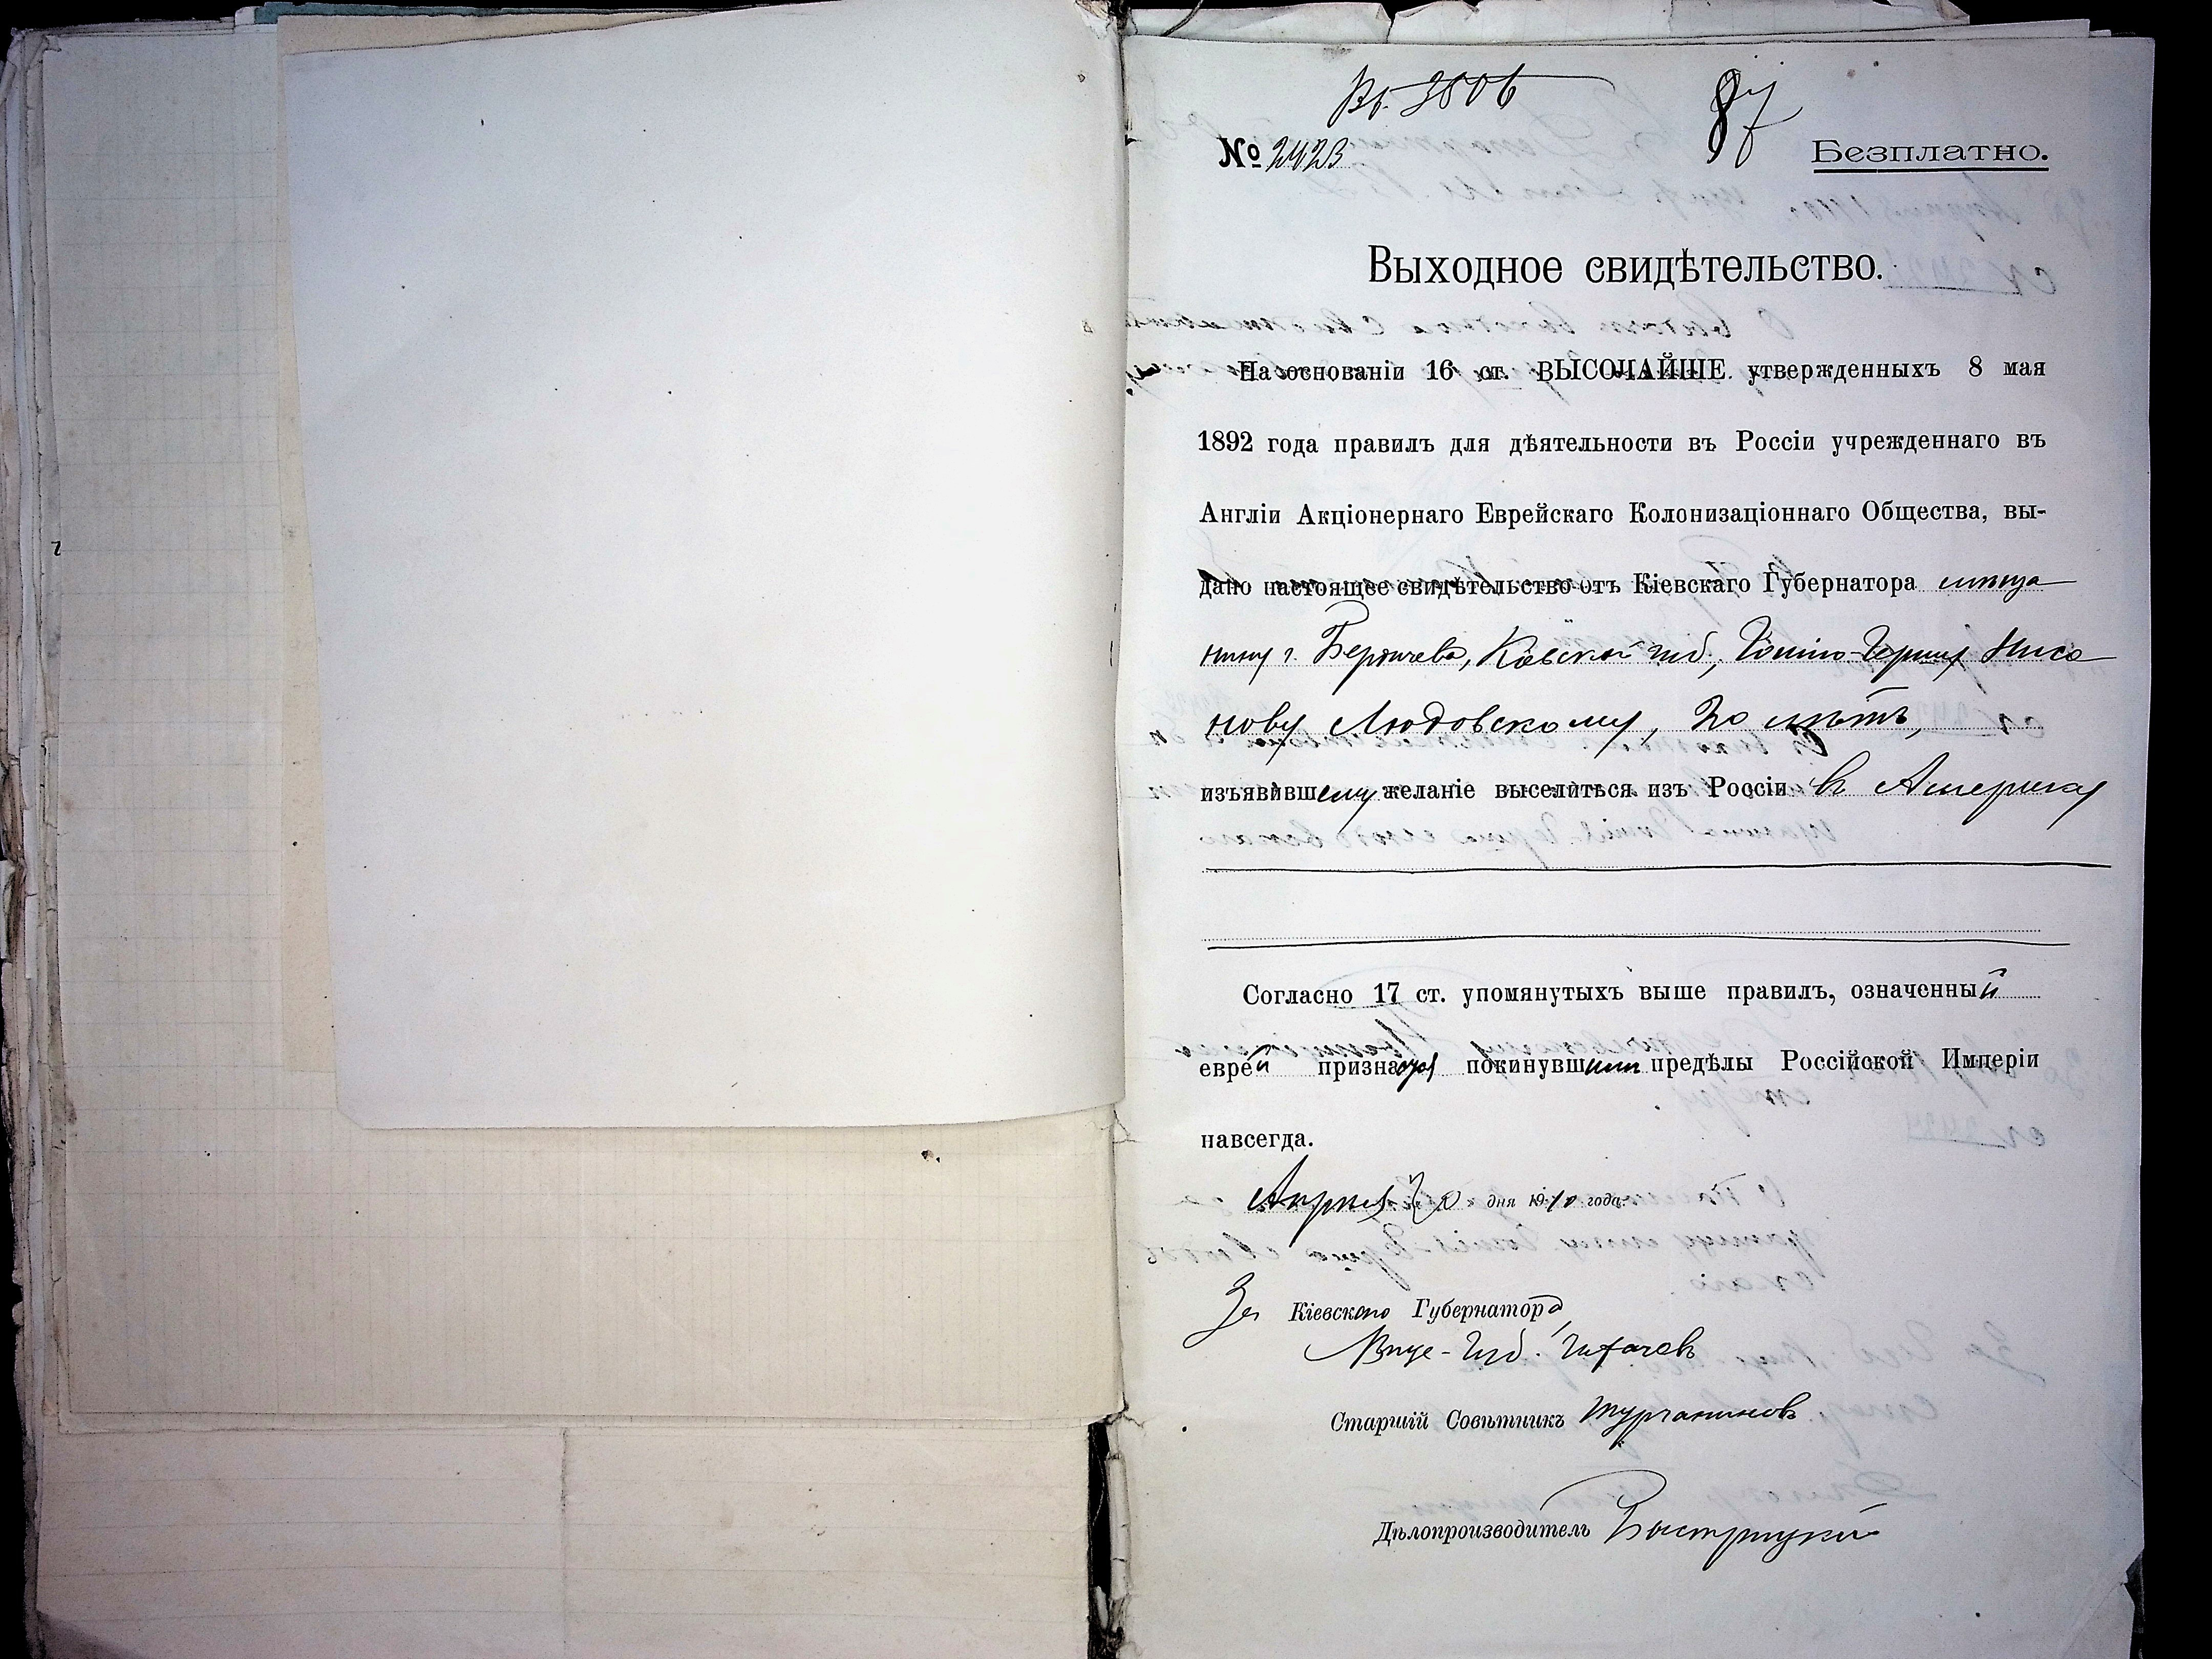 Вх. 3806
87
№ 2423
Безплатно.
Выходное свидѣтельство.
На основаніи 16 ст. ВЫСОЧАЙШЕ утвержденныхъ 8 мая
1892 года правилъ для дѣятельности въ Россіи учрежденнаго въ
Англіи Акціонернаго Еврейскаго Колонизаціоннаго Общества, вы-
дано настоящее свидѣтельство отъ Кіевскаго Губернатора мѣща
нину г. Бердичева, Кіевской губ., Гершу Ниса
нову Людовскому, 20 лѣтъ,
изъявившему желаніе выселиться изъ Россіи въ Америку
Согласно 17 ст. упомянутыхъ выше правилъ, означенный
еврей признается покинувшимъ предѣлы Россійской Имперіи
навсегда.
Апрѣля 20 дня 1910 года.
За Кіевскаго Губернатора,
Вице-Губ. Чихачевъ
Старшій Совѣтникъ Турчаниновъ
Дѣлопроизводитель Быстрицкій